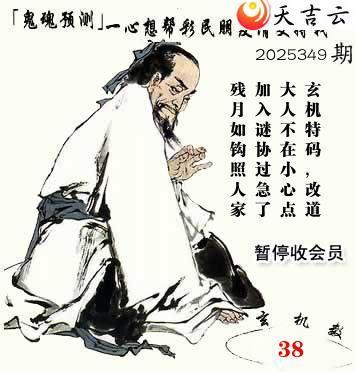 天吉云
「鬼魂预测」一心想帮彩民朋
2025349 期
玄机特码，改道
大人不在小心点
加入谜协过急了
残月如钩照人家
暂停收会员
玄机数
38